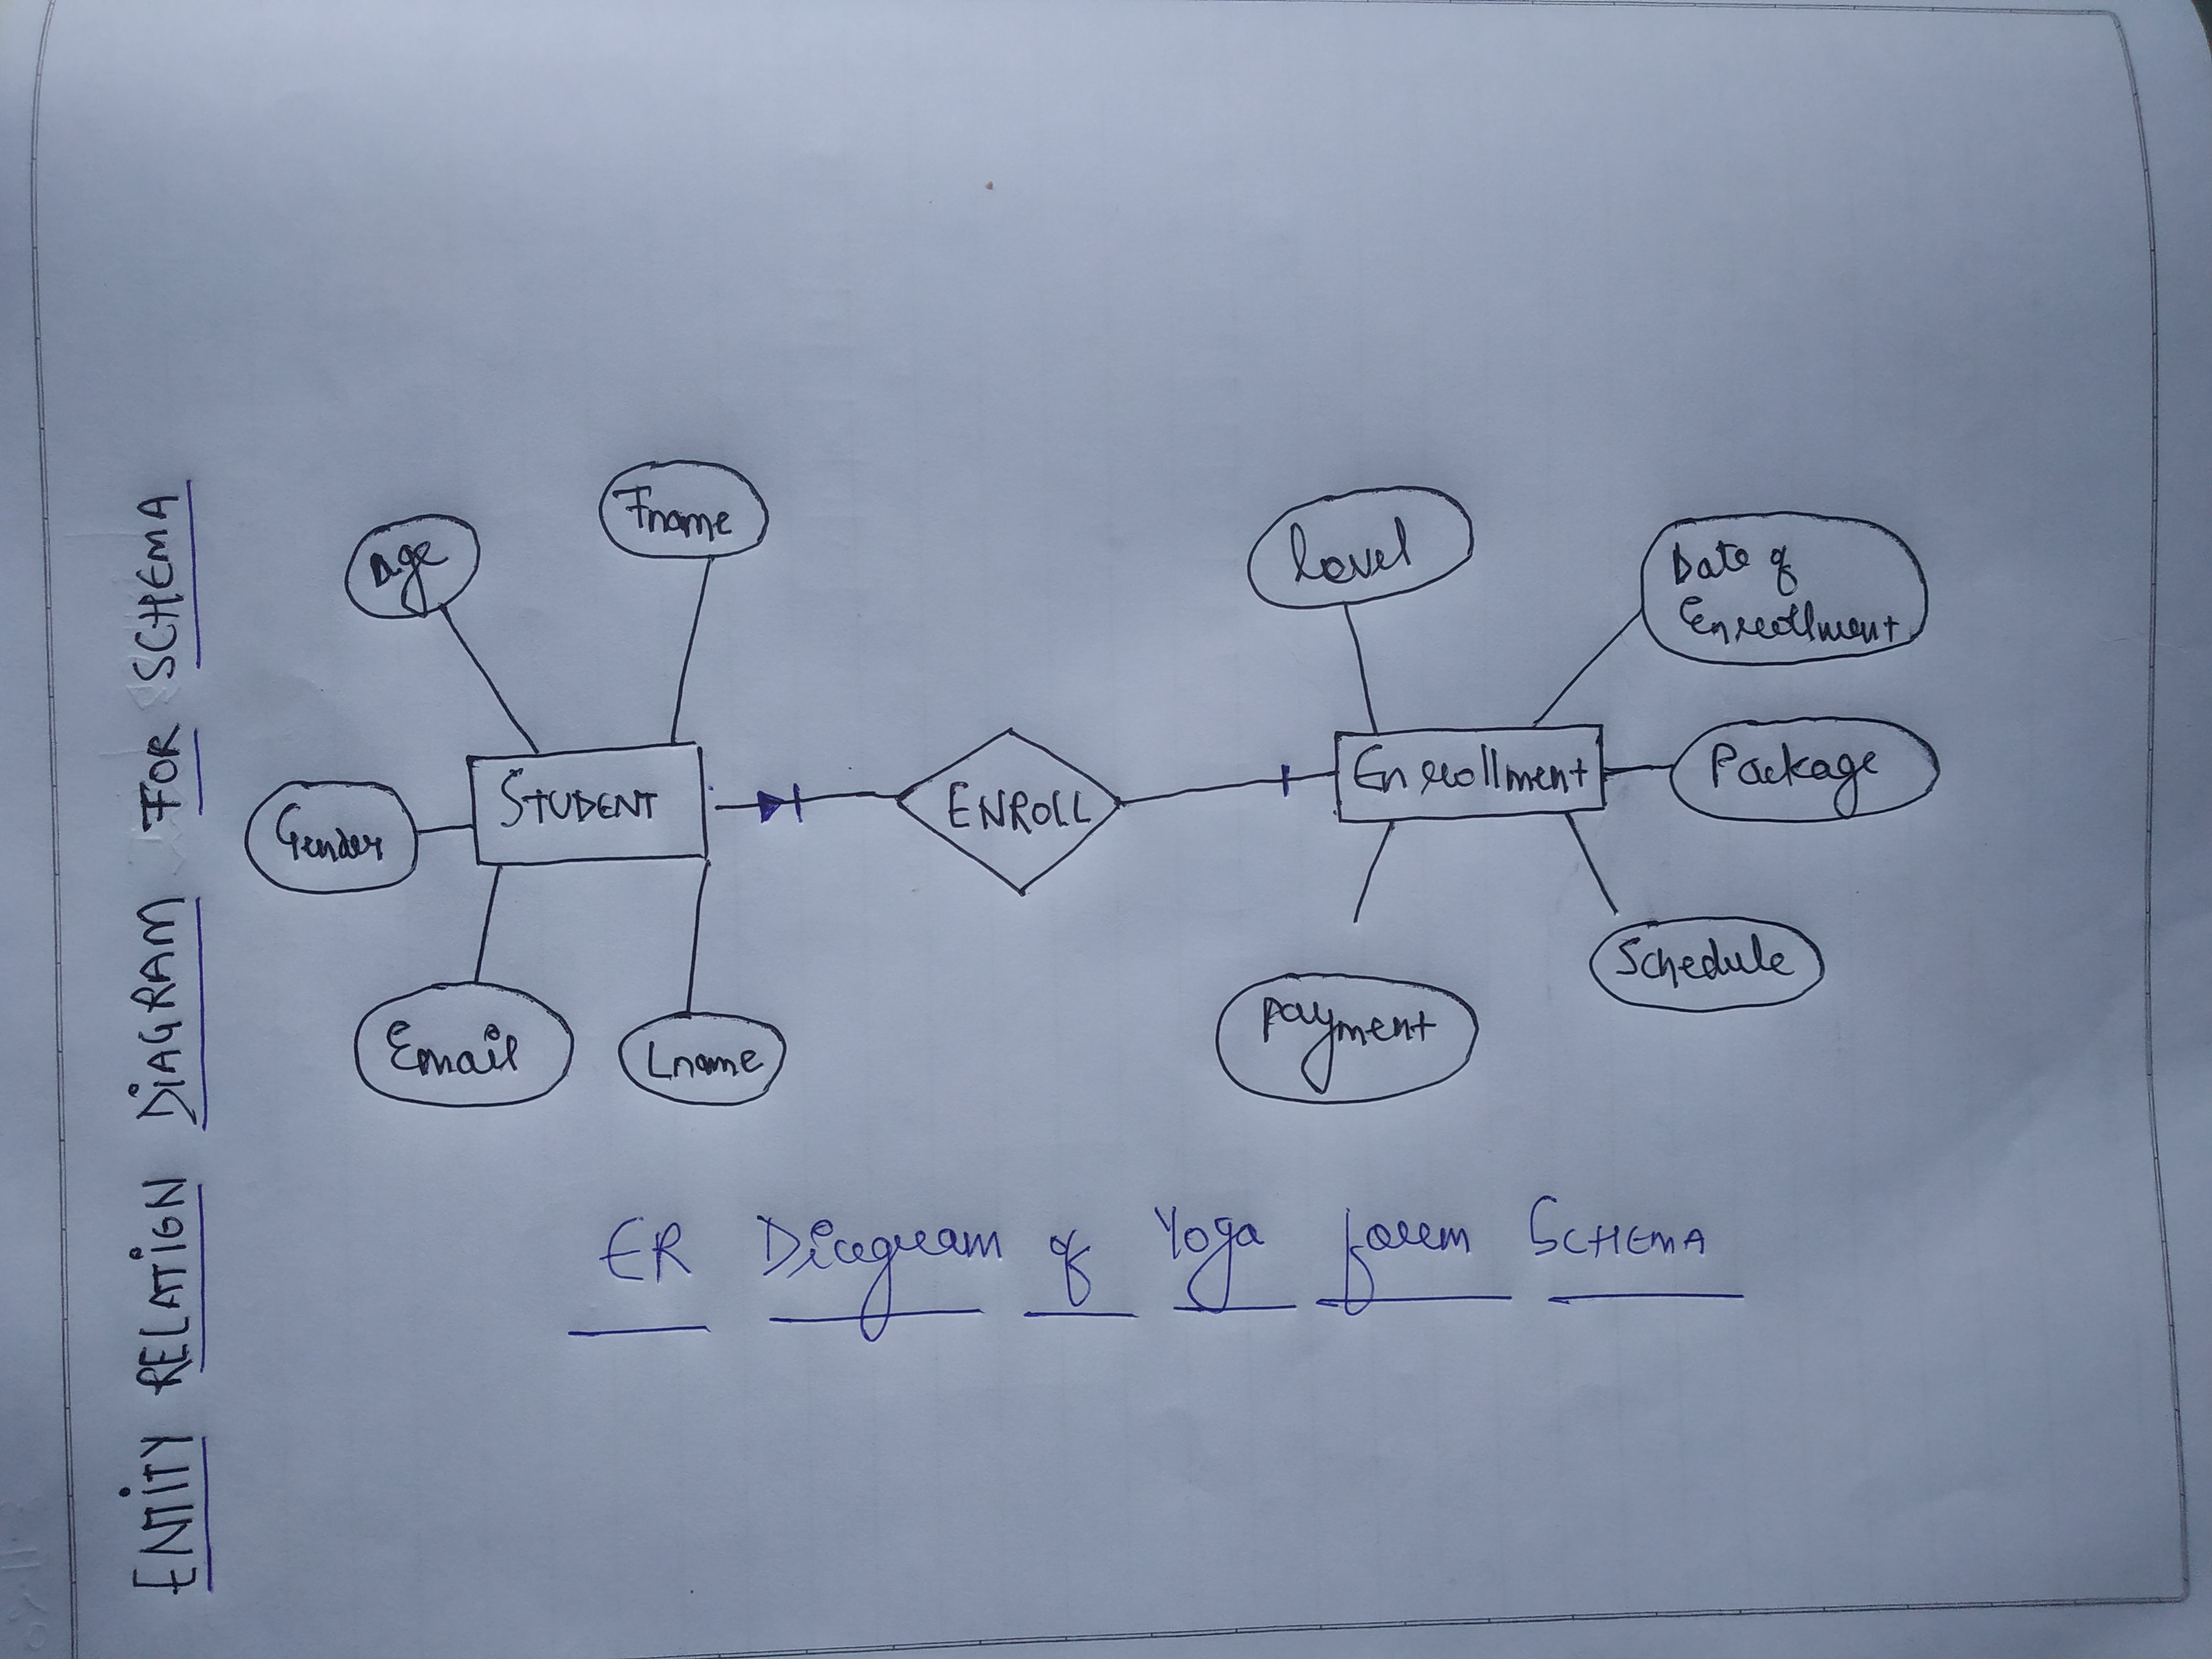 ENTITY RELATION DIAGRAM FOR SCHEMA
Age
Fname
Gender
STUDENT
Email
Lname
ENROLL
level
Date of
Enrollment
Enrollment
Package
Payment
Schedule
ER Diagram of Yoga form SCHEMA